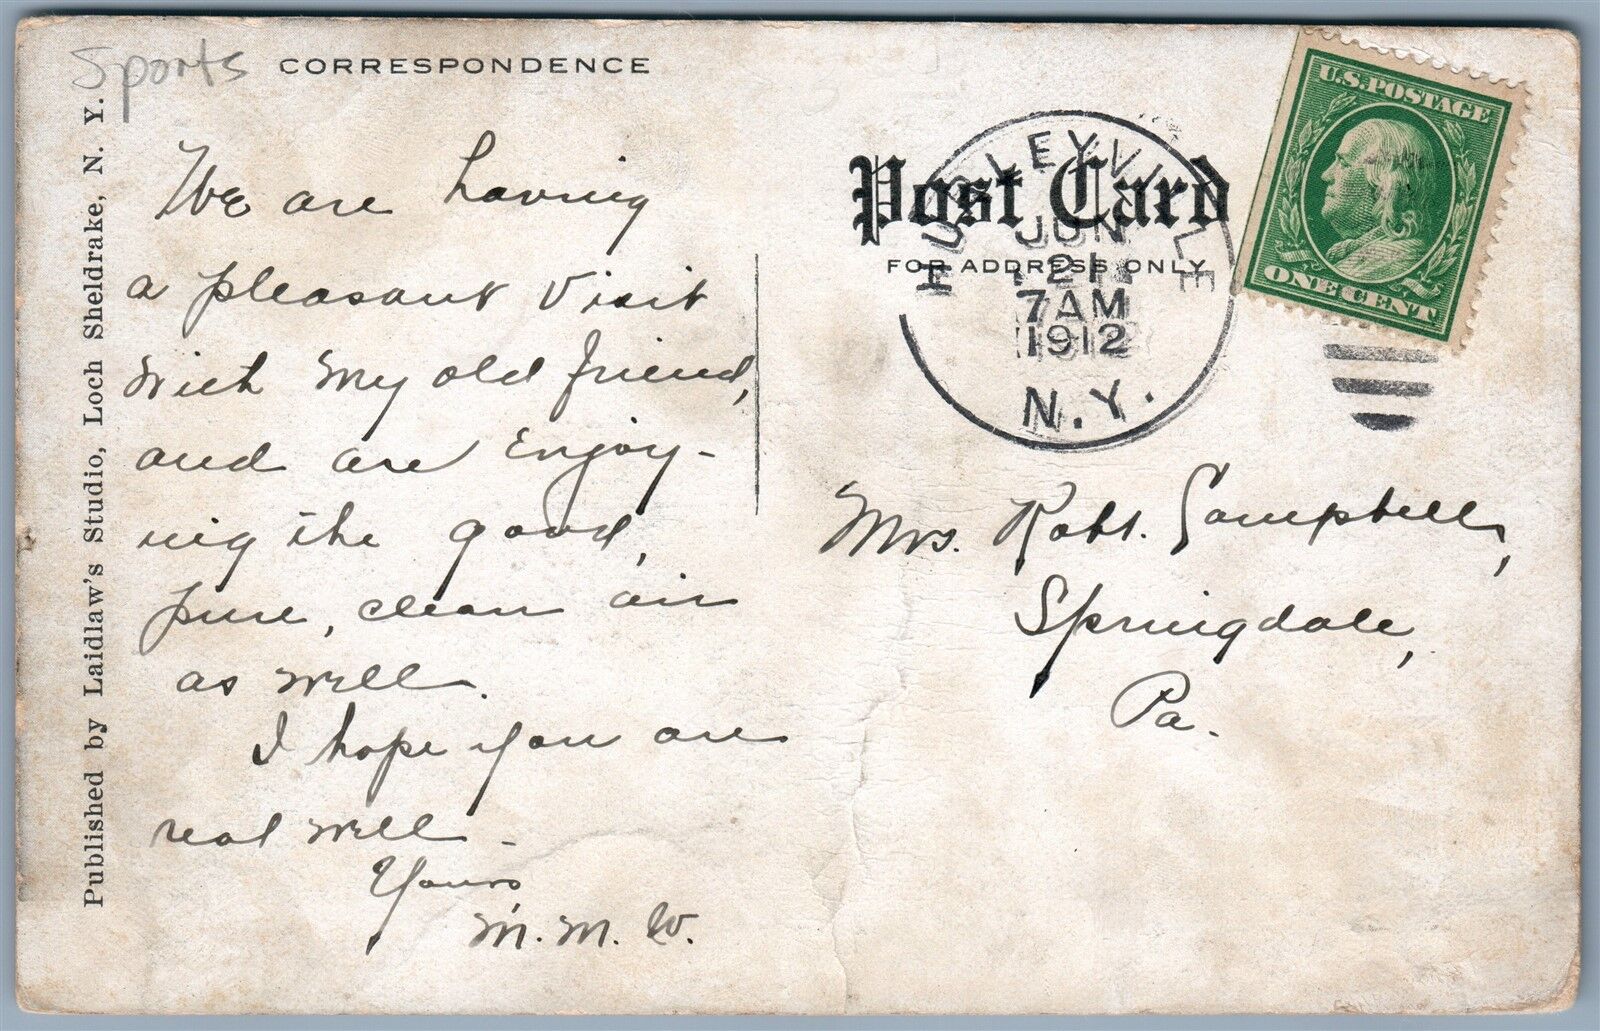 Sports
CORRESPONDENCE
We are having
a pleasant visit
with my old friend,
and are enjoy-
ing the good,
pure, clean air
as well.
I hope you are
real well -
Yours
M. M. W.
Published by Laidlaw's Studio, Loch Sheldrake, N. Y.
Post Card
FOR ADDRESS ONLY
HURLEYVILLE
JUN
21
7AM
1912
N.Y.
U.S. POSTAGE
ONE CENT
Mrs. Robt. Campbell,
Springdale,
Pa.